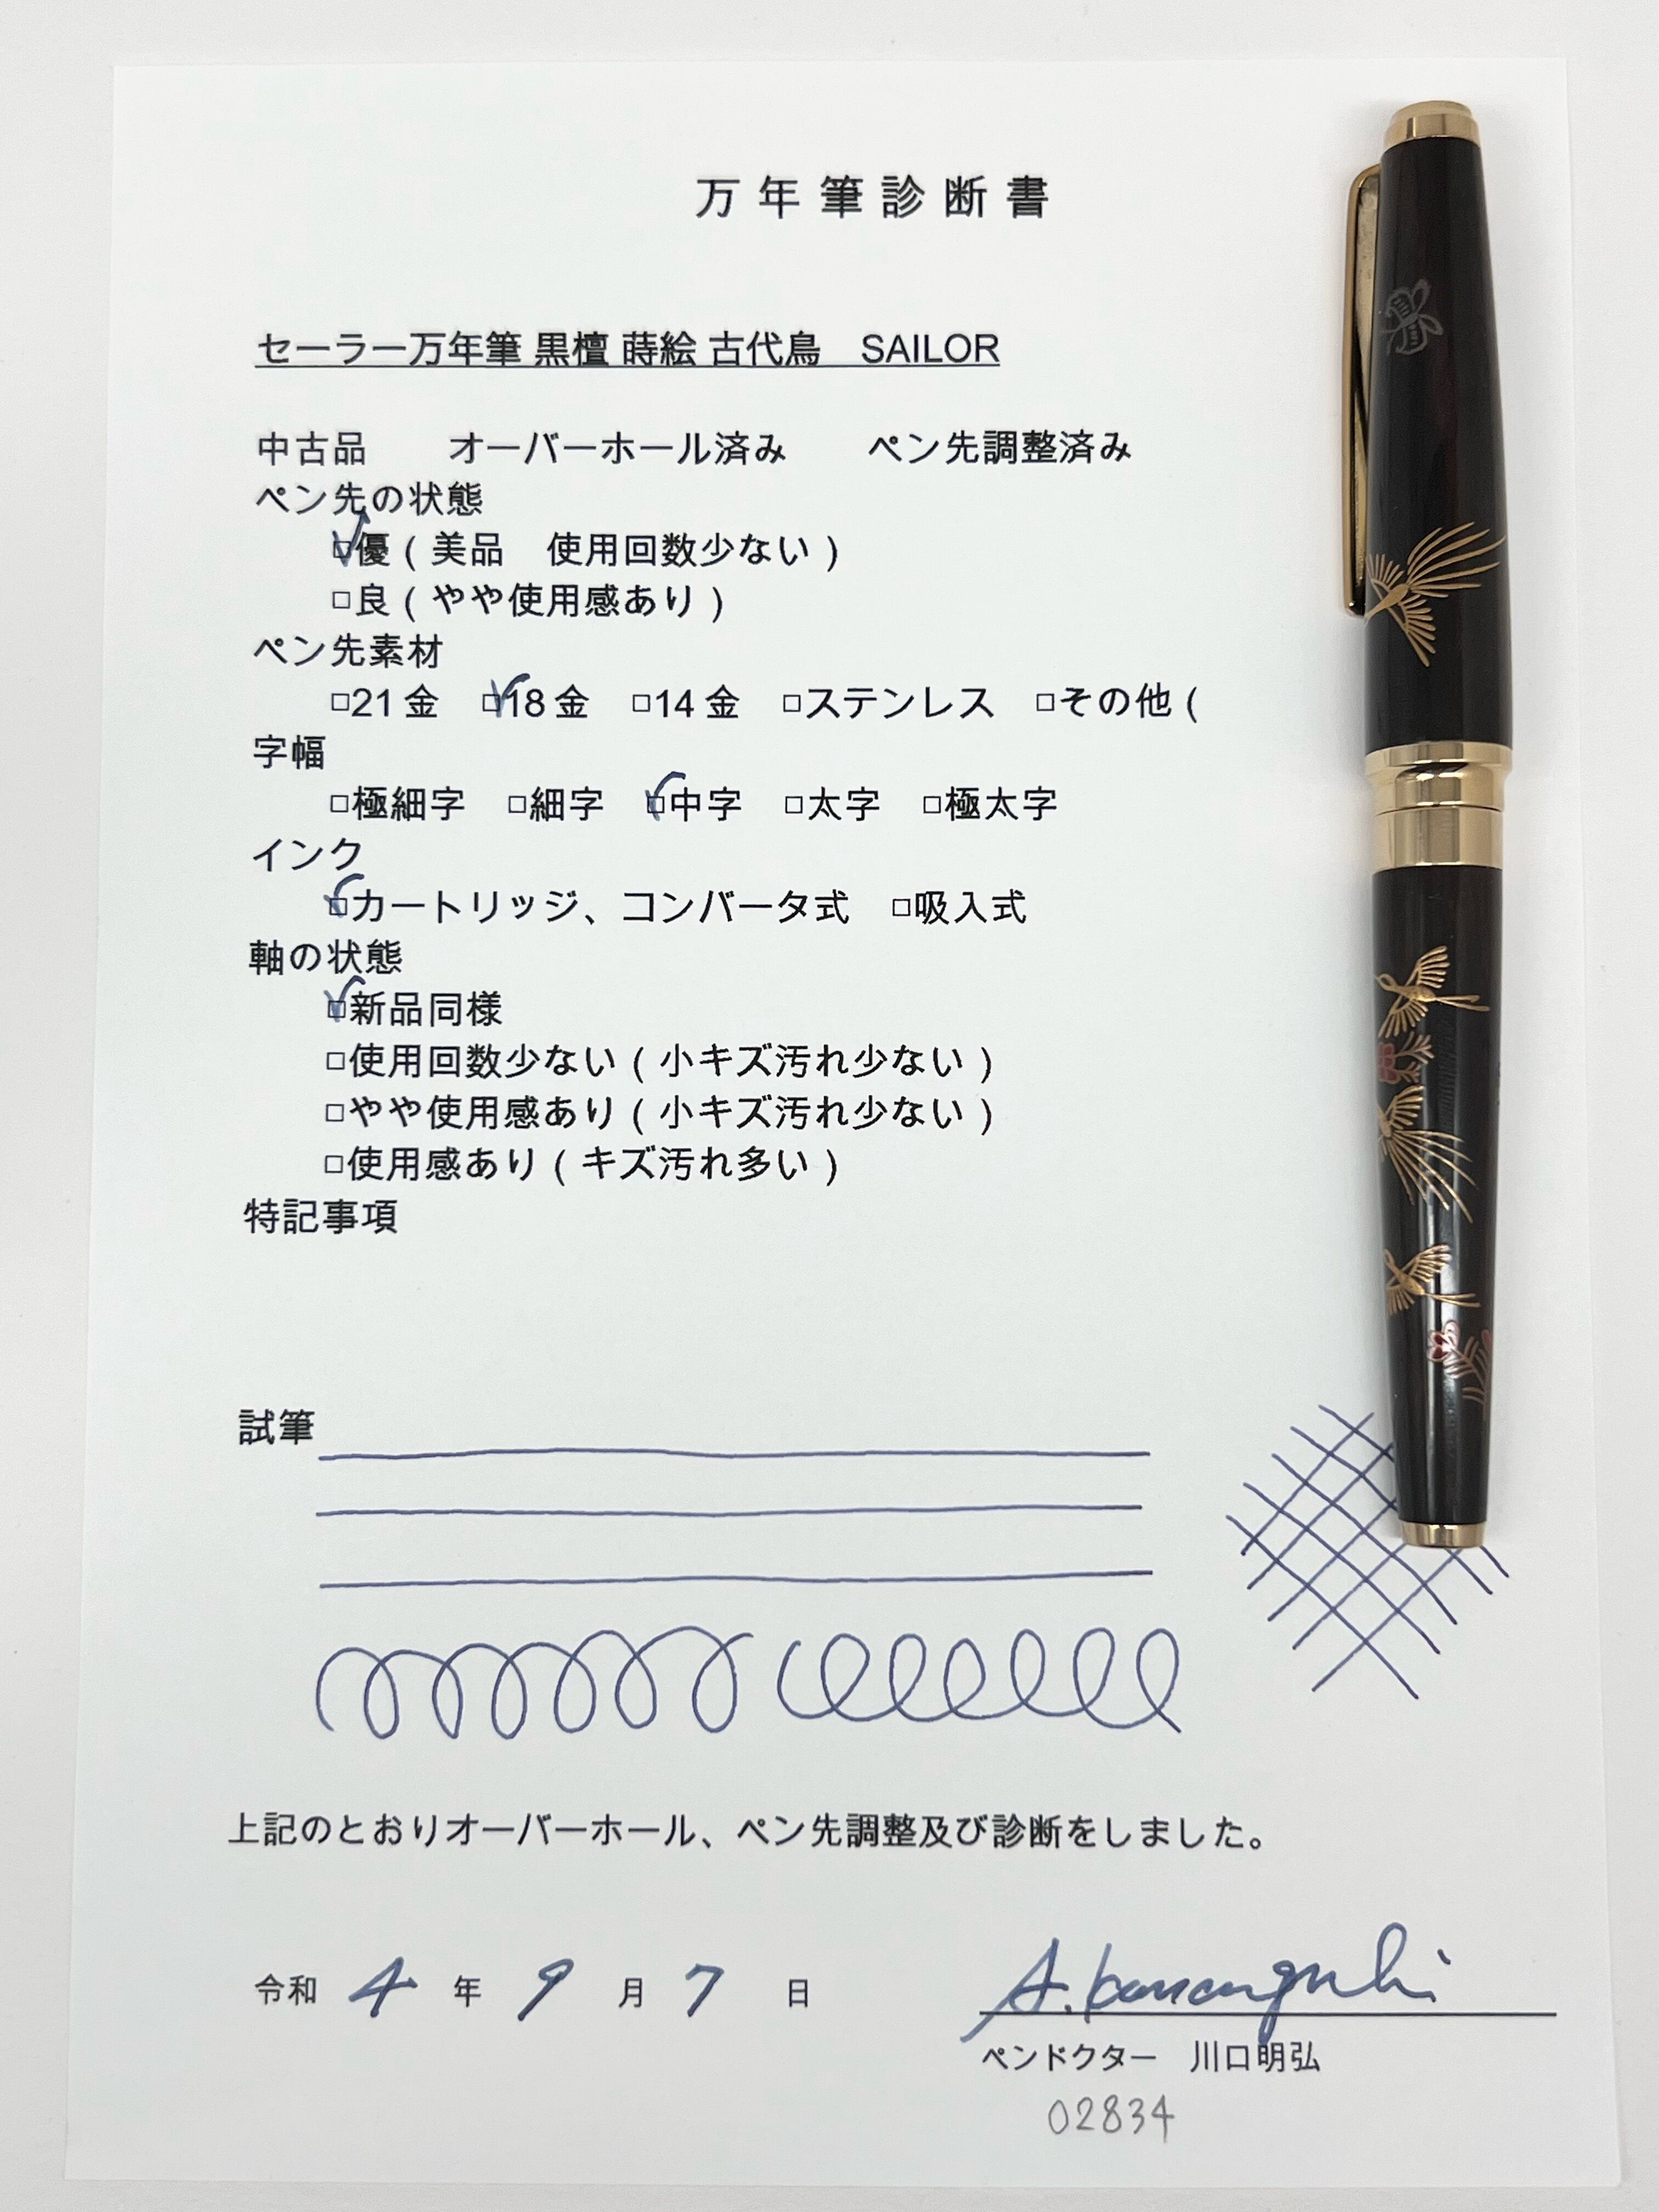 万年筆診断書
セーラー万年筆 黒檀 蒔絵 古代鳥　SAILOR
中古品　　オーバーホール済み　　ペン先調整済み
ペン先の状態
☑優（美品　使用回数少ない）
□良（やや使用感あり）
ペン先素材
□21金　☑18金　□14金　□ステンレス　□その他（
字幅
□極細字　□細字　☑中字　□太字　□極太字
インク
☑カートリッジ、コンバータ式　□吸入式
軸の状態
☑新品同様
□使用回数少ない（小キズ汚れ少ない）
□やや使用感あり（小キズ汚れ少ない）
□使用感あり（キズ汚れ多い）
特記事項
試筆
上記のとおりオーバーホール、ペン先調整及び診断をしました。
令和 4 年 9 月 7 日
A. Kawaguchi
ペンドクター　川口明弘
02834